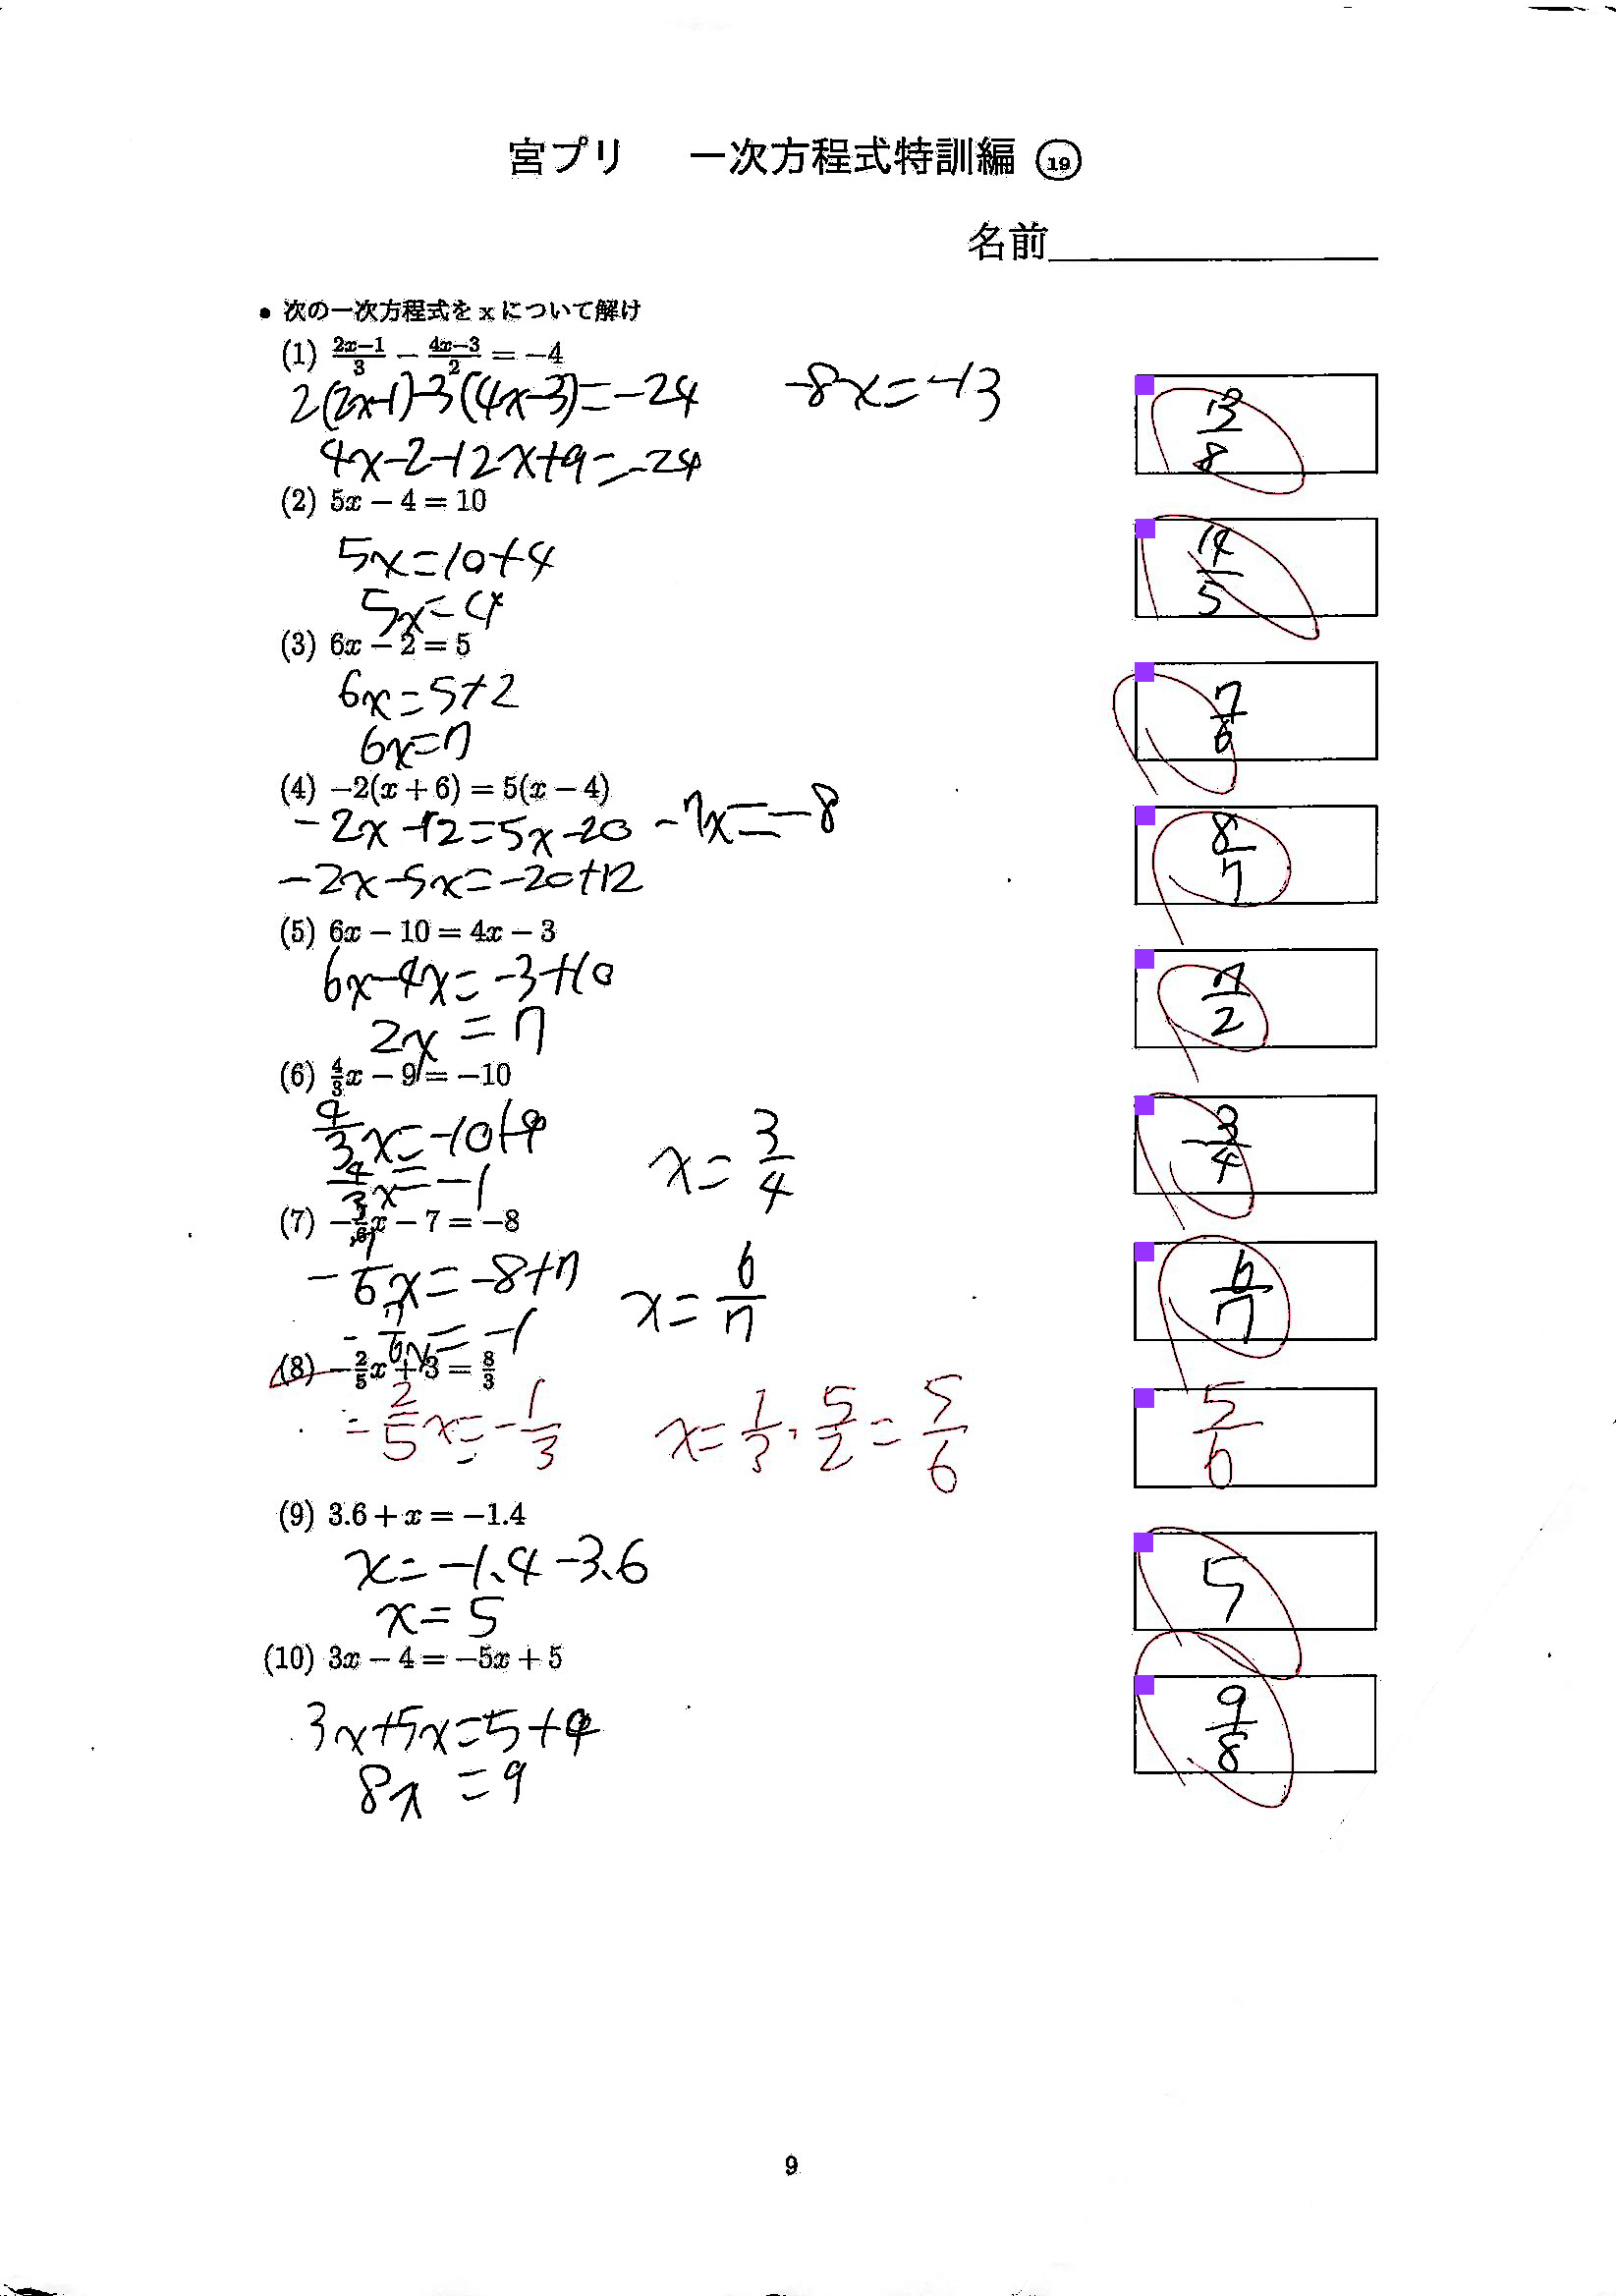 宮プリ 一次方程式特訓編 ⑲
名前
● 次の一次方程式を x について解け
(1) \frac{2x-1}{3} - \frac{4x-3}{2} = -4
2(2x-1)-3(4x-3)=-24
-8x=-13
4x-2-12x+9=-24
\frac{13}{8}
(2) 5x - 4 = 10
5x=10+4
\frac{14}{5}
(3) 6x - 2 = 5
6x=5+2
6x=7
\frac{7}{6}
(4) -2(x + 6) = 5(x - 4)
-2x-12=5x-20
-7x=-8
-2x-5x=-20+12
\frac{8}{7}
(5) 6x - 10 = 4x - 3
6x-4x=-3+10
2x=7
\frac{7}{2}
(6) \frac{4}{3}x - 9 = -10
\frac{4}{3}x=-10+9
\frac{4}{3}x=-1
x=\frac{3}{4}
-\frac{3}{4}
(7) -\frac{7}{6}x - 7 = -8
-\frac{7}{6}x=-8+7
-\frac{7}{6}x=-1
x=\frac{6}{7}
\frac{6}{7}
(8) -\frac{2}{5}x + 3 = \frac{8}{3}
-\frac{2}{5}x=-\frac{1}{3}
x=\frac{1}{3}·\frac{5}{2}=\frac{5}{6}
\frac{5}{6}
(9) 3.6 + x = -1.4
x=-1.4-3.6
x=5
5
(10) 3x - 4 = -5x + 5
3x+5x=5+4
8x=9
\frac{9}{8}
9